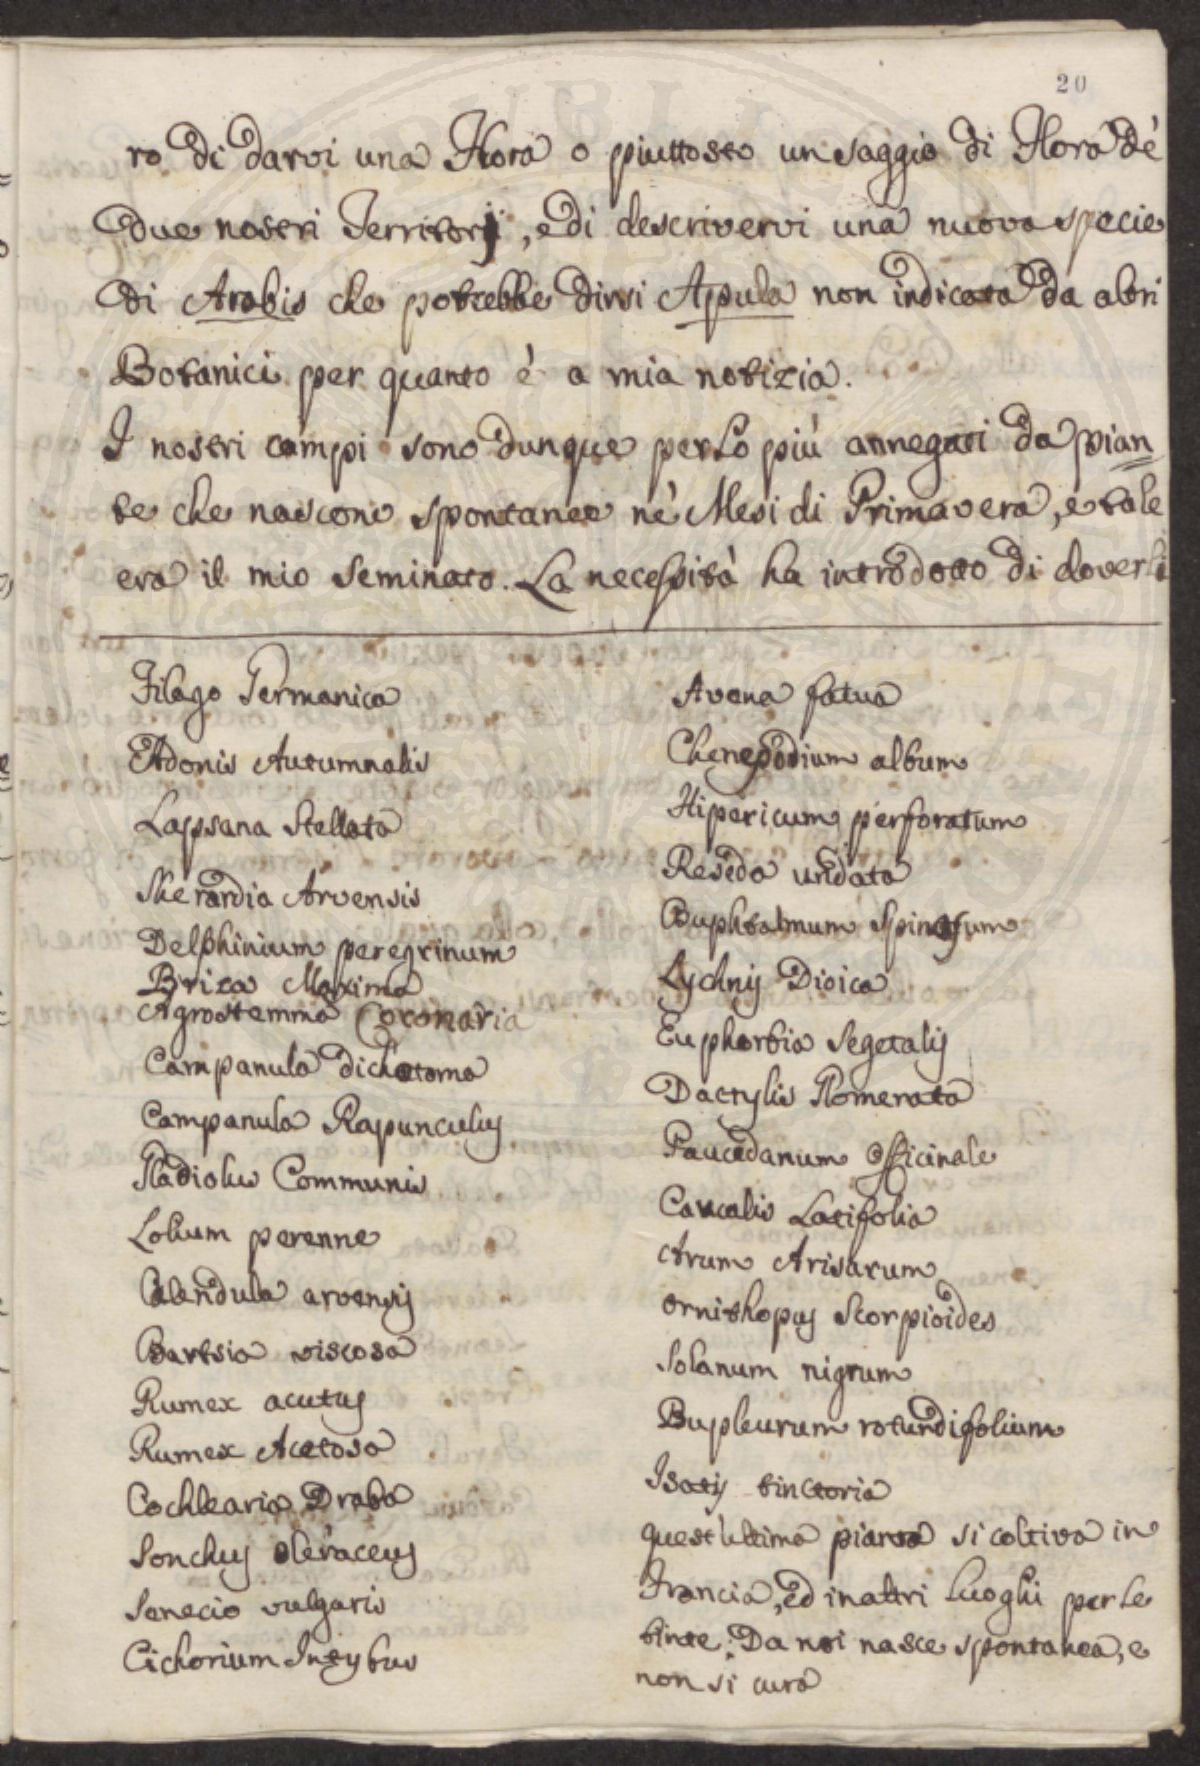 20
ro di darvi una Flora o piuttosto un saggio di Flora de'
due nostri Territorj, e di descrivervi una nuova specie
di Arabis che potrebbe dirsi Apula non indicata da altri
Botanici per quanto è a mia notizia.
I nostri campi sono dunque perlo più annegati da pian=
te che nascono spontanee ne' Mesi di Primavera, e tale
era il mio seminato. La necessità ha introdotto di doverli
Filago Germanica
Adonis Autumnalis
Lapsana Stellata
Sherardia Arvensis
Delphinium peregrinum
Briza Maxima
Agrostemma Coronaria
Campanula dichotoma
Campanula Rapunculus
Gladiolus Communis
Lolium perenne
Calendula arvensis
Bartsia viscosa
Rumex acutus
Rumex Acetosa
Cochlearia Draba
Sonchus oleraceus
Senecio vulgaris
Cichorium Intybus
Avena fatua
Chenepodium album
Hipericum perforatum
Reseda undata
Buphtalmum Spinosum
Lychnis Dioica
Euphorbia Segetalis
Dactylis Glomerata
Paucedanum Officinale
Caucalis Latifolia
Arum Arisarum
Ornithopus Scorpioides
Solanum nigrum
Bupleurum rotundifolium
Isatis tinctoria
quest'ultima pianta si coltiva in
Francia, ed in altri luoghi per le
tinte. Da noi nasce spontanea, e
non si cura